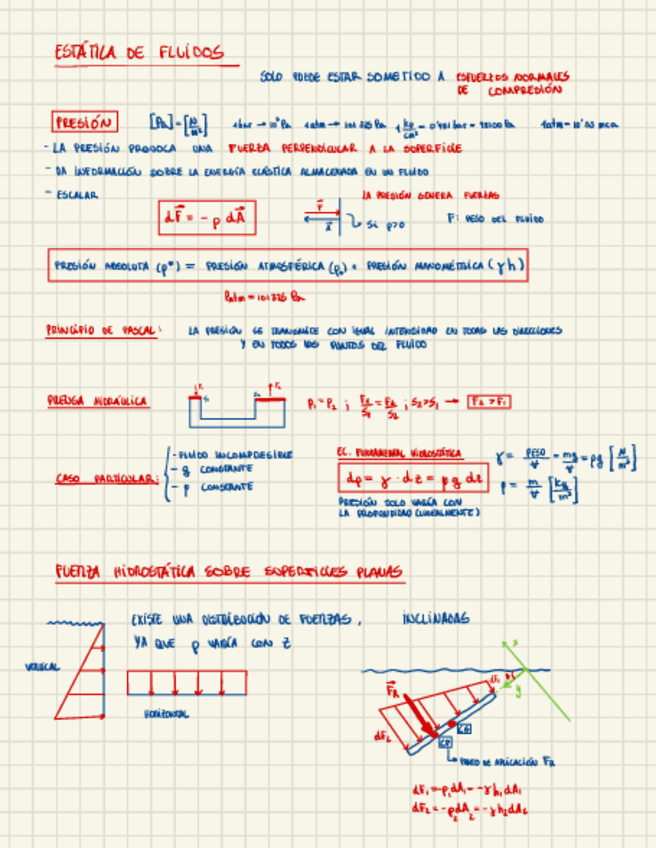 ESTÁTICA DE FLUIDOS
SOLO PUEDE ESTAR SOMETIDO A ESFUERZOS NORMALES
DE COMPRESIÓN
PRESIÓN [Pa] = [N/m²] 1 bar → 10⁵ Pa 1 atm → 101 325 Pa
- LA PRESIÓN PROVOCA UNA FUERZA PERPENDICULAR A LA SUPERFICIE
- DA INFORMACIÓN SOBRE LA ENERGÍA ELÁSTICA ALMACENADA EN UN FLUIDO
- ESCALAR
LA PRESIÓN GENERA FUERZAS
dF = - p dA
F
A
Si p>0
F: PESO DEL FLUIDO
PRESIÓN ABSOLUTA (p*) = PRESIÓN ATMOSFÉRICA (p₀) + PRESIÓN MANOMÉTRICA (γh)
Patm = 101325 Pa
PRINCIPIO DE PASCAL: LA PRESIÓN SE TRANSMITE CON IGUAL INTENSIDAD EN TODAS LAS DIRECCIONES
Y EN TODOS LOS PUNTOS DEL FLUIDO
PRENSA HIDRÁULICA
P₁ = P₂ ; F₁/S₁ = F₂/S₂ ; S₂>S₁ → F₂ > F₁
CASO PARTICULAR:
- FLUIDO INCOMPRESIBLE
- g CONSTANTE
- ρ CONSTANTE
EC. FUNDAMENTAL HIDROSTÁTICA
dp = γ · dz = ρ g dz
PRESIÓN SOLO VARÍA CON
LA PROFUNDIDAD (LINEALMENTE)
γ = PESO/V = mg/V = ρg [N/m³]
ρ = m/V [kg/m³]
FUERZA HIDROSTÁTICA SOBRE SUPERFICIES PLANAS
EXISTE UNA DISTRIBUCIÓN DE FUERZAS,
YA QUE p VARÍA CON Z
INCLINADAS
VERTICAL
HORIZONTAL
x
y
dF₁
F_R
dF₂
CG
CP
PUNTO DE APLICACIÓN F_R
dF₁ = -p₁dA₁ = -γh₁dA₁
dF₂ = -p₂dA₂ = -γh₂dA₂